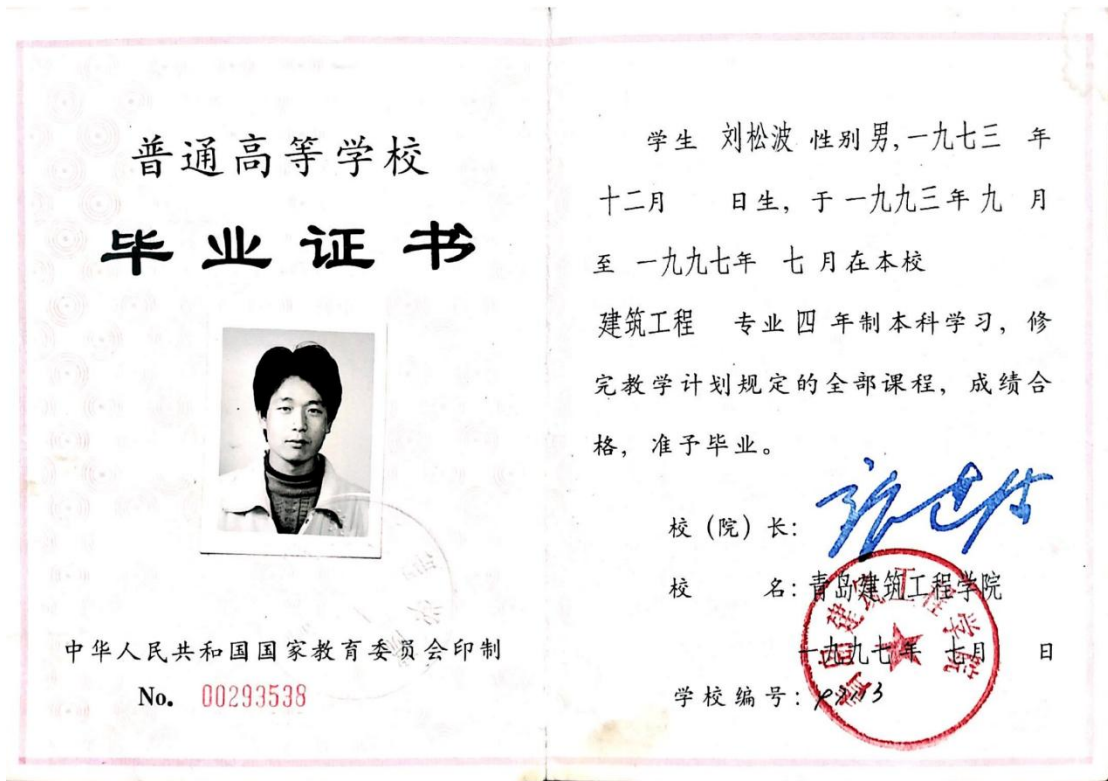 普通高等学校
毕业证书
中华人民共和国国家教育委员会印制
No. 00293538
学生 刘松波 性别 男,一九七三 年
十二月 日生, 于 一九九三年 九 月
至 一九九七年 七 月在本校
建筑工程 专业 四 年制本科学习, 修
完教学计划规定的全部课程, 成绩合
格, 准予毕业。
校 (院) 长:
校 名: 青岛建筑工程学院
一九九七年 七月 日
学校编号:
青岛建筑工程学院